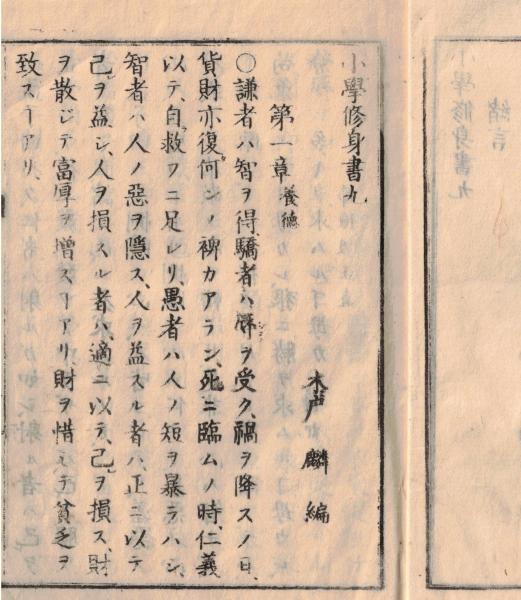 小學修身書九
木戸麟編
第一章 養德
○謙者ハ智ヲ得、驕者ハ辱ヲ受ク、禍ヲ降スノ日、
貨財亦復何ンノ裨カアラン、死ニ臨ムノ時、仁義
以テ、自救フニ足レリ、愚者ハ人ノ短ヲ暴ラハシ、
智者ハ人ノ惡ヲ隱ス、人ヲ益スル者ハ、正ニ以テ
己ヲ益シ、人ヲ損スル者ハ、適ニ以テ、己ヲ損ス、財
ヲ散ジテ富厚ヲ增スヿアリ、財ヲ惜ミテ貧乏ヲ
致スヿアリ、